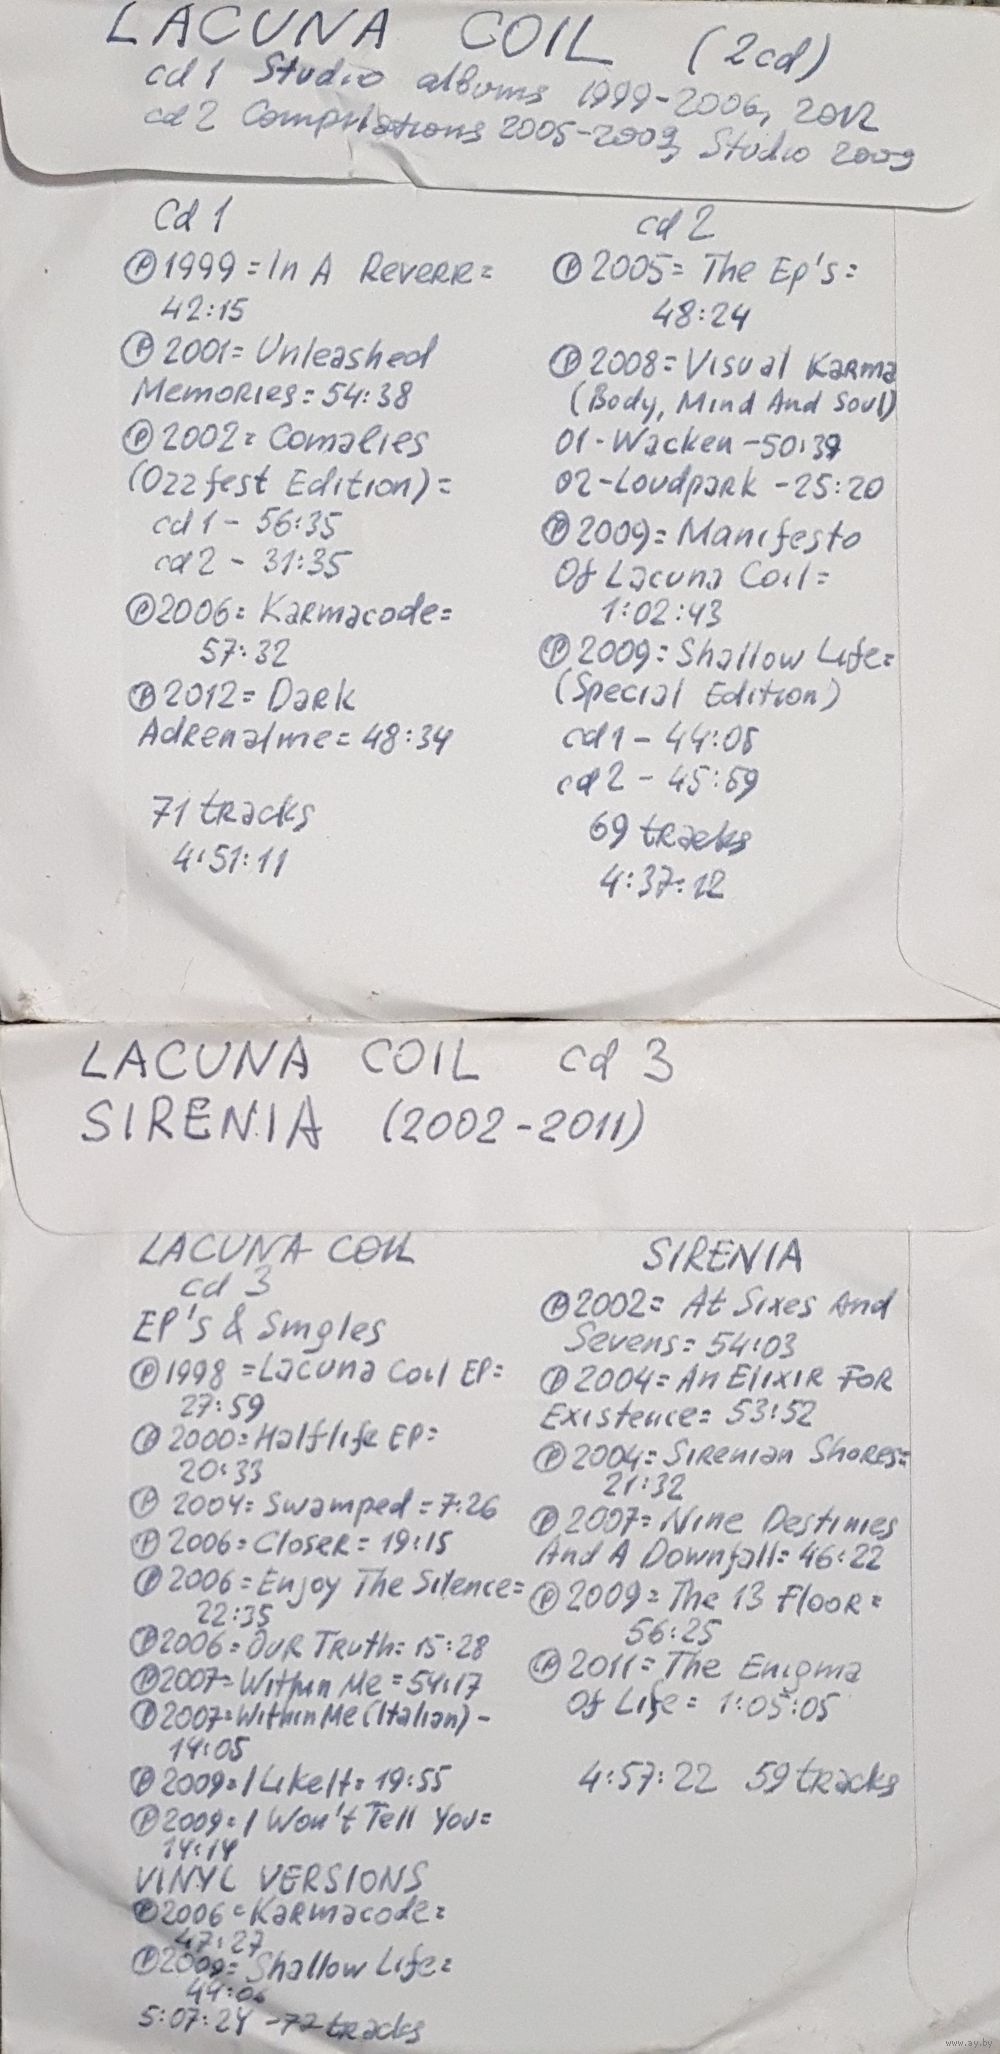 LACUNA COIL (2cd)
cd 1 Studio albums 1999-2006, 2012
cd 2 Compilations 2005-2009, Studio 2009
Cd 1
Ⓟ 1999 = In A Reverr =
42:15
Ⓟ 2001 = Unleashed
Memories = 54:38
Ⓟ 2002 = Comalies
(Ozzfest Edition) =
cd 1 - 56:35
cd 2 - 31:35
Ⓟ 2006 = Karmacode =
57:32
Ⓟ 2012 = Dark
Adrenaline = 48:34
71 tracks
4:51:11
cd 2
Ⓟ 2005 = The Ep's =
48:24
Ⓟ 2008 = Visual Karma
(Body, Mind And Soul)
01 - Wacken - 50:39
02 - Loudpark - 25:20
Ⓟ 2009 = Manifesto
Of Lacuna Coil =
1:02:43
Ⓟ 2009 = Shallow Life =
(Special Edition)
cd 1 - 44:05
cd 2 - 45:59
69 tracks
4:37:12
LACUNA COIL cd 3
SIRENIA (2002-2011)
LACUNA COIL
cd 3
EP's & Singles
Ⓟ 1998 = Lacuna Coil EP =
27:59
Ⓟ 2000 = Halflife EP =
20:33
Ⓟ 2004 = Swamped = 7:26
Ⓟ 2006 = Closer = 19:15
Ⓟ 2006 = Enjoy The Silence =
22:35
Ⓟ 2006 = Our Truth = 15:28
Ⓟ 2007 = Within Me = 54:17
Ⓟ 2007 = Within Me (Italian) -
14:05
Ⓟ 2009 = I Like It = 19:55
Ⓟ 2009 = I Won't Tell You =
14:14
VINYL VERSIONS
Ⓟ 2006 = Karmacode =
47:27
Ⓟ 2009 = Shallow Life =
44:06
5:07:24 - 77 tracks
SIRENIA
Ⓟ 2002 = At Sixes And
Sevens = 54:03
Ⓟ 2004 = An Elixir For
Existence = 53:52
Ⓟ 2004 = Sirenian Shores =
21:32
Ⓟ 2007 = Nine Destinies
And A Downfall = 46:22
Ⓟ 2009 = The 13 Floor =
56:25
Ⓟ 2011 = The Enigma
Of Life = 1:05:05
4:57:22 59 tracks
www.ay.by